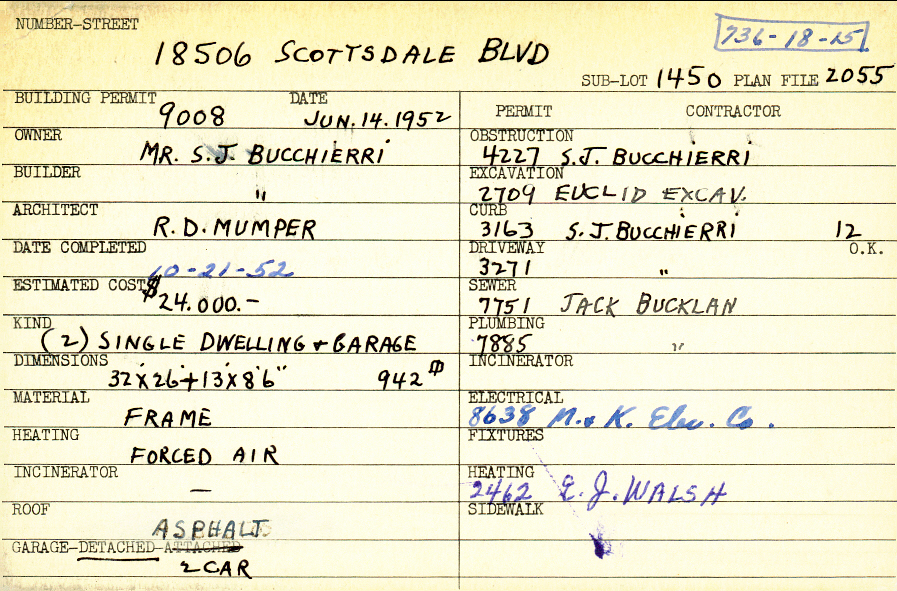 NUMBER-STREET
736-18-15
18506 SCOTTSDALE BLVD
SUB-LOT 1450 PLAN FILE 2055
BUILDING PERMIT DATE
9008 JUN. 14. 1952
OWNER
MR. S.J. BUCCHIERRI
BUILDER
"
ARCHITECT
R.D. MUMPER
DATE COMPLETED
10-21-52
ESTIMATED COST $
24.000.-
KIND
(2) SINGLE DWELLING + GARAGE
DIMENSIONS
32'x26'+13'x8'6" 942
MATERIAL
FRAME
HEATING
FORCED AIR
INCINERATOR
—
ROOF
ASPHALT
GARAGE-DETACHED-ATTACHED
2 CAR
PERMIT CONTRACTOR
OBSTRUCTION
4227 S.J. BUCCHIERRI
EXCAVATION
2709 EUCLID EXCAV.
CURB
3163 S.J. BUCCHIERRI 12
DRIVEWAY O.K.
3271 "
SEWER
7751 JACK BUCKLAN
PLUMBING
7885 "
INCINERATOR
ELECTRICAL
8638 M. & K. Elec. Co.
FIXTURES
HEATING
2462 E.J. WALSH
SIDEWALK